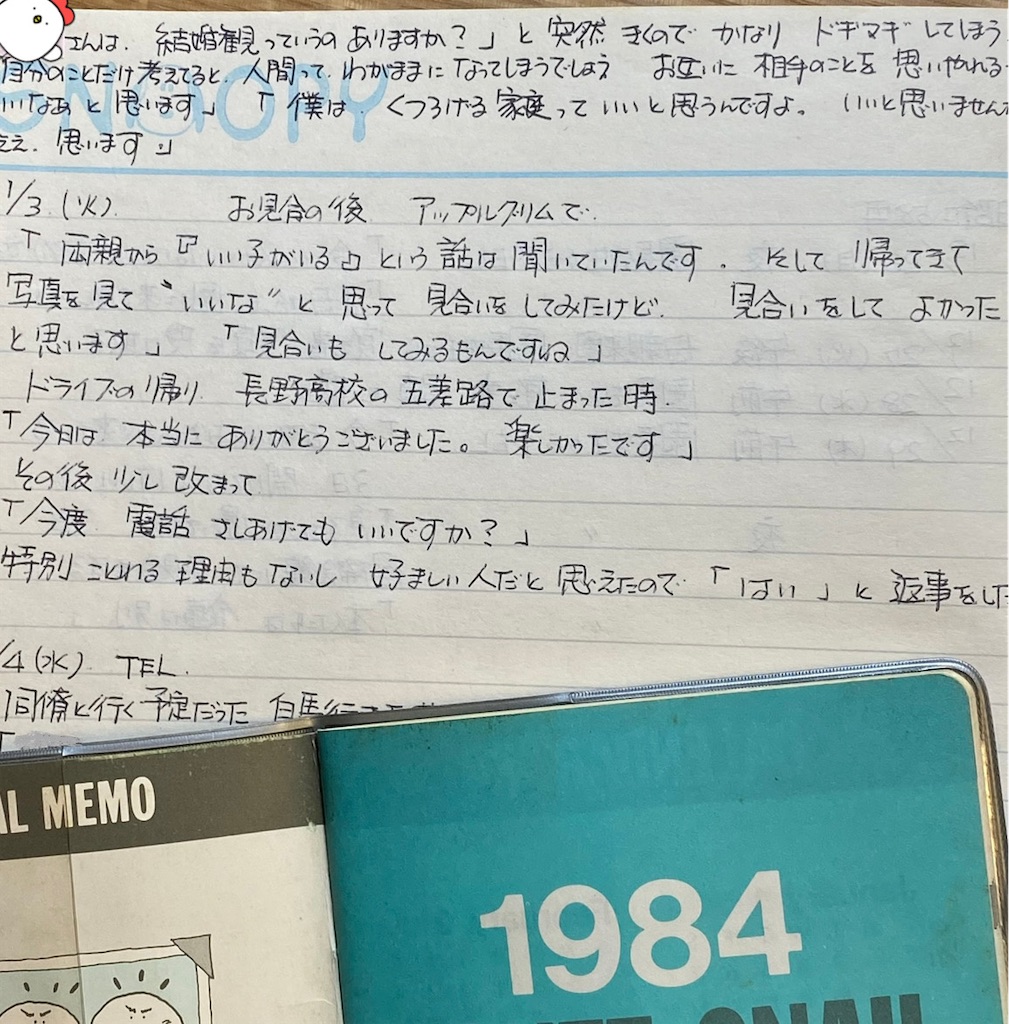 さんは、結婚観っていうの ありますか？」と 突然 きくので かなり ドギマギしてしまう
自分のことだけ考えてると、人間って わがままに なってしまうでしょう お互いに 相手のことを 思いやれる
いいなぁと 思います」「僕は、くつろげる 家庭って いいと思うんですよ。いいと思いません
ええ、思います。」
SNOOPY
1/3.(火). お見合の後 アップルグリムで.
「両親から『いい子がいる』という話は聞いていたんです. そして 帰ってきて
写真を見て “いいな”と 思って 見合いを してみたけど. 見合いをして よかった
と思います」「見合いも してみるもんですね」
ドライブの帰り 長野高校の 五差路で 止まった時.
「今日は 本当に ありがとうございました。楽しかったです」
その後 少し 改まって
「今度 電話 さしあげても いいですか？」
特別 ことわる 理由も ないし 好ましい 人だと 思えたので 「はい」と 返事をした
/4(水). TEL.
同僚と行く 予定だった 白馬行き
AL MEMO
1984
SNAIL